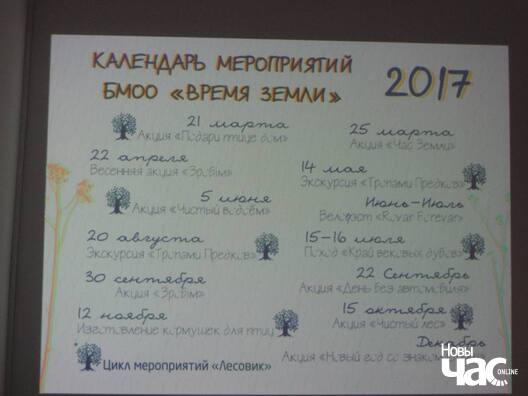 КАЛЕНДАРЬ МЕРОПРИЯТИЙ
БМОО «ВРЕМЯ ЗЕМЛИ»
2017
21 марта
Акция «Подари птице дом»
25 марта
Акция «Час Земли»
22 апреля
Весенняя акция «Зробім»
14 мая
Экскурсия «Тропами Предков»
5 июня
Акция «Чистый водоём»
Июнь-Июль
Велофэст «Rovar Forever»
20 августа
Экскурсия «Тропами Предков»
15-16 июля
Поход «Край вековых дубов»
30 сентября
Акция «Зробім»
22 Сентябрь
Акция «День без автомобиля»
12 ноября
Изготовление кормушек для птиц
15 октября
Акция «Чистый лес»
Декабрь
Акция «Новый год со знаком
Цикл мероприятий «Лесовик»
Новы
Час
ONLINE